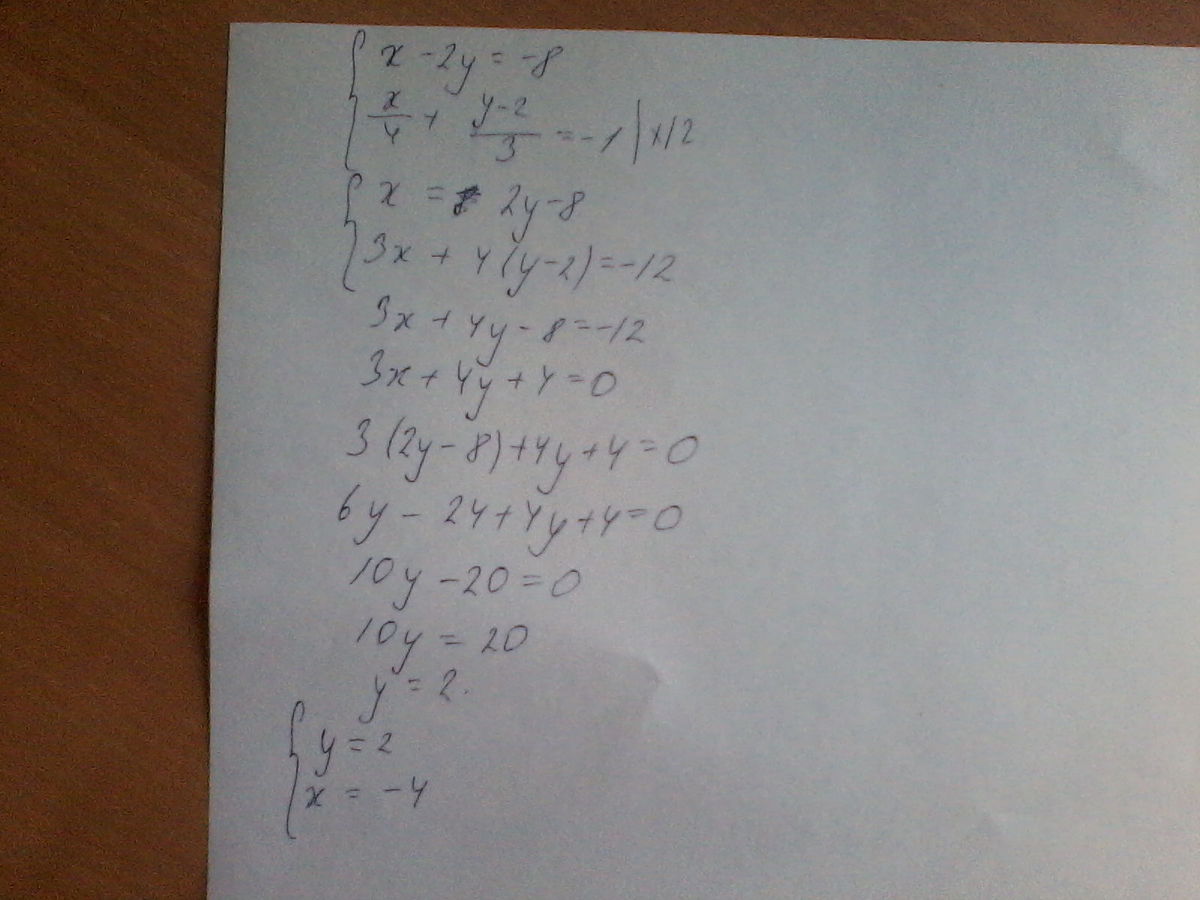 { x - 2y = -8
x/4 + (y-2)/3 = -1 | x12
{ x = 2y-8
3x + 4(y-2) = -12
3x + 4y - 8 = -12
3x + 4y + 4 = 0
3(2y-8)+4y+4=0
6y - 24+4y+4=0
10y - 20 = 0
10y = 20
y = 2.
{ y = 2
x = -4